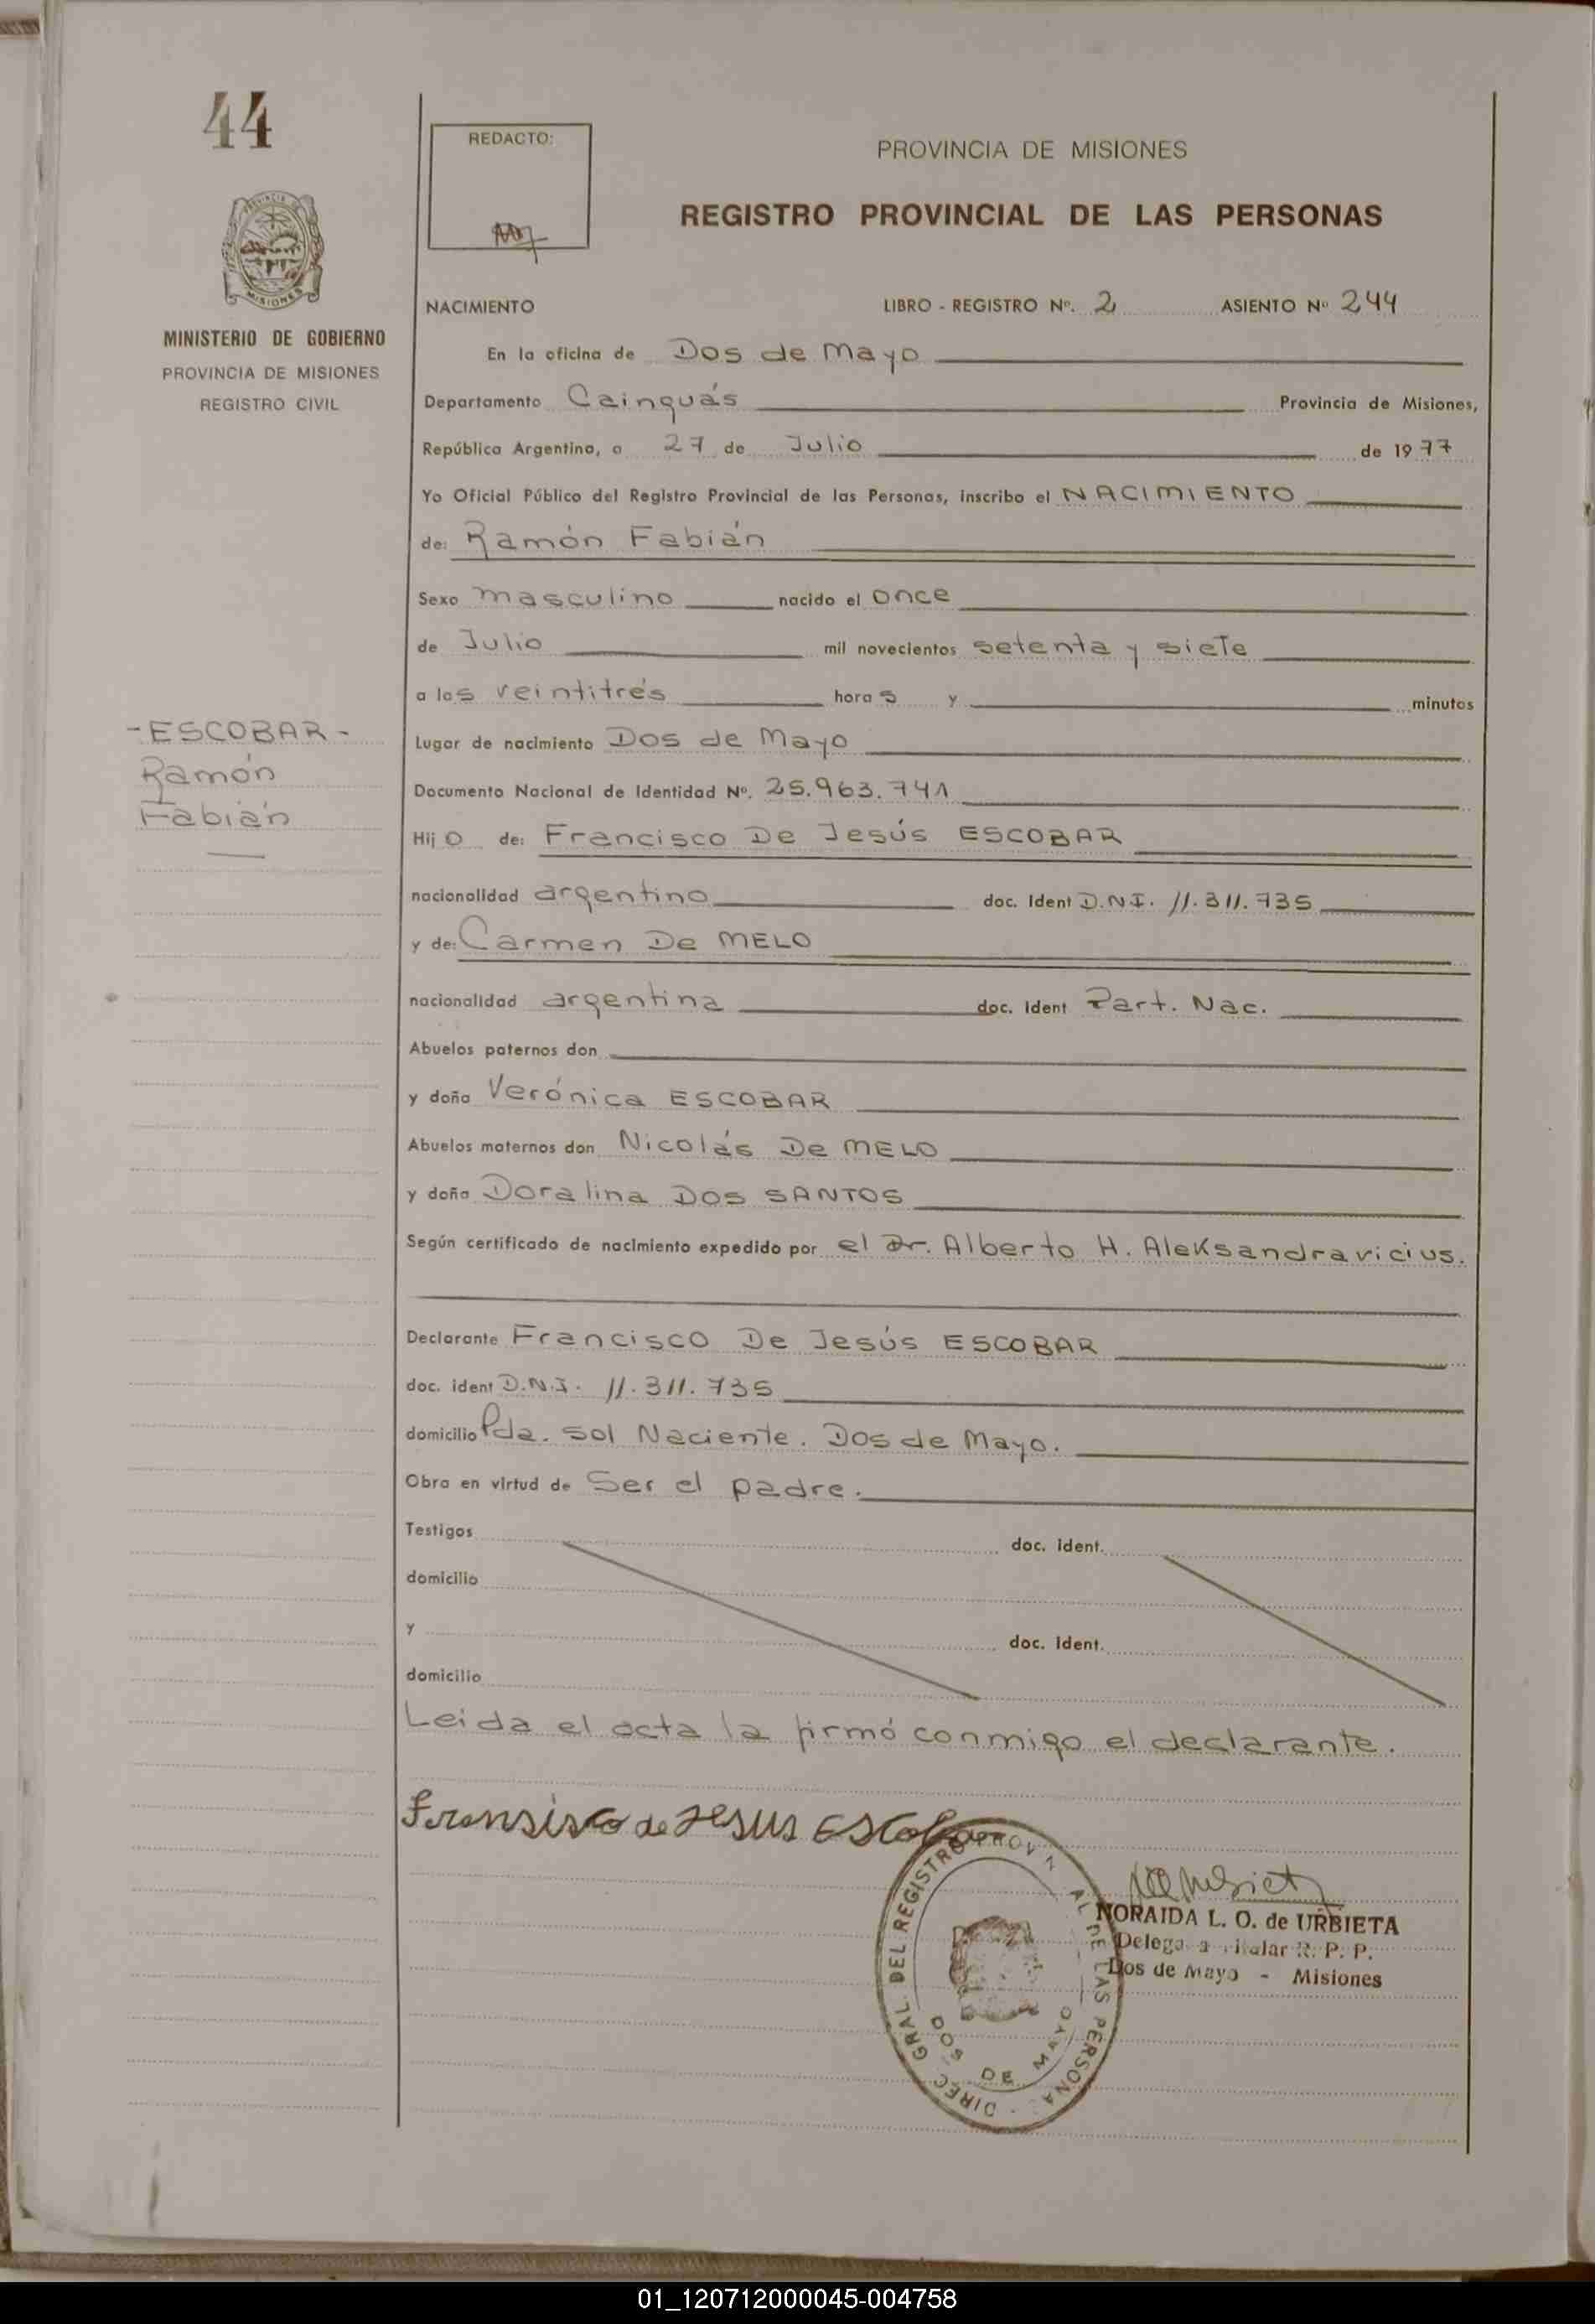 44
MINISTERIO DE GOBIERNO
PROVINCIA DE MISIONES
REGISTRO CIVIL
-ESCOBAR-
Ramón
Fabián
REDACTO:
PROVINCIA DE MISIONES
REGISTRO PROVINCIAL DE LAS PERSONAS
NACIMIENTO LIBRO - REGISTRO Nº. 2 ASIENTO Nº 244
En la oficina de Dos de Mayo
Departamento Cainguás Provincia de Misiones,
República Argentina, a 27 de Julio de 1977
Yo Oficial Público del Registro Provincial de las Personas, inscribo el NACIMIENTO
de: Ramón Fabián
Sexo masculino nacido el once
de Julio mil novecientos setenta y siete
a las veintitrés horas y minutos
Lugar de nacimiento Dos de Mayo
Documento Nacional de Identidad Nº. 25.963.741
Hijo de: Francisco De Jesús ESCOBAR
nacionalidad argentino doc. Ident D.N.I. 11.311.735
y de: Carmen De MELO
nacionalidad argentina doc. Ident Part. Nac.
Abuelos paternos don
y doña Verónica ESCOBAR
Abuelos maternos don Nicolás De MELO
y doña Doralina DOS SANTOS
Según certificado de nacimiento expedido por el Dr. Alberto H. Aleksandravicius.
Declarante Francisco De Jesús ESCOBAR
doc. ident D.N.I. 11.311.735
domicilio Pda. Sol Naciente. Dos de Mayo.
Obra en virtud de Ser el padre.
Testigos doc. ident.
domicilio
y doc. ident.
domicilio
Leida el acta la firmó conmigo el declarante.
Fransisco de Jesus Escobar
DIREC. GRAL. DEL REGISTRO PROVIN AL DE LAS PERSONA
DOS DE MAYO
NORAIDA L. O. de URBIETA
R. P. P.
Dos de Mayo - Misiones
01_120712000045-004758